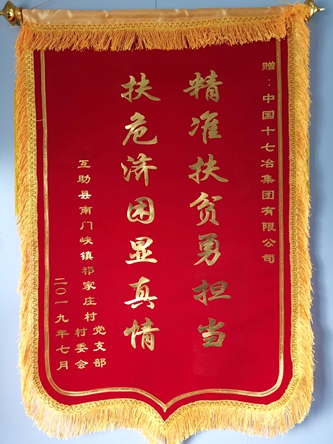 赠：中国十七冶集团有限公司
精准扶贫勇担当
扶危济困显真情
互助县南门峡镇祁家庄村党支部
村委会
二〇一九年七月